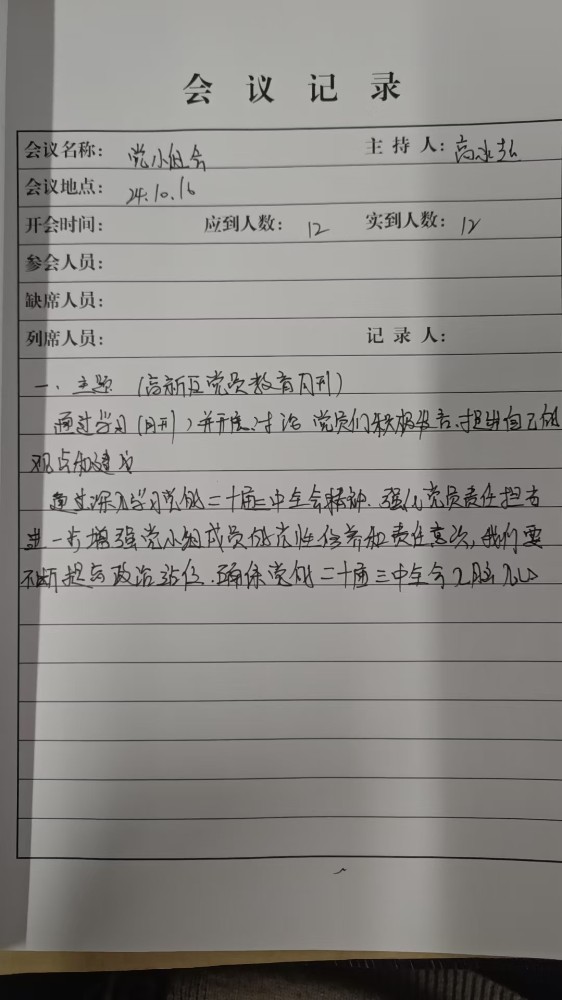 会议记录
会议名称: 党小组会 主持人: 高
会议地点: 24.10.16
开会时间: 应到人数: 12 实到人数: 12
参会人员:
缺席人员:
列席人员: 记录人:
一、主题 (高新区党员教育月刊)
通过学习(月刊)并开展讨论 党员们积极发言、提出自己的
观点和建议
通过深入学习党的二十届三中全会精神、强化党员责任担当
进一步增强党小组成员的党性修养和责任意识,我们要
不断提高政治站位、确保党的二十届三中全会入脑入心